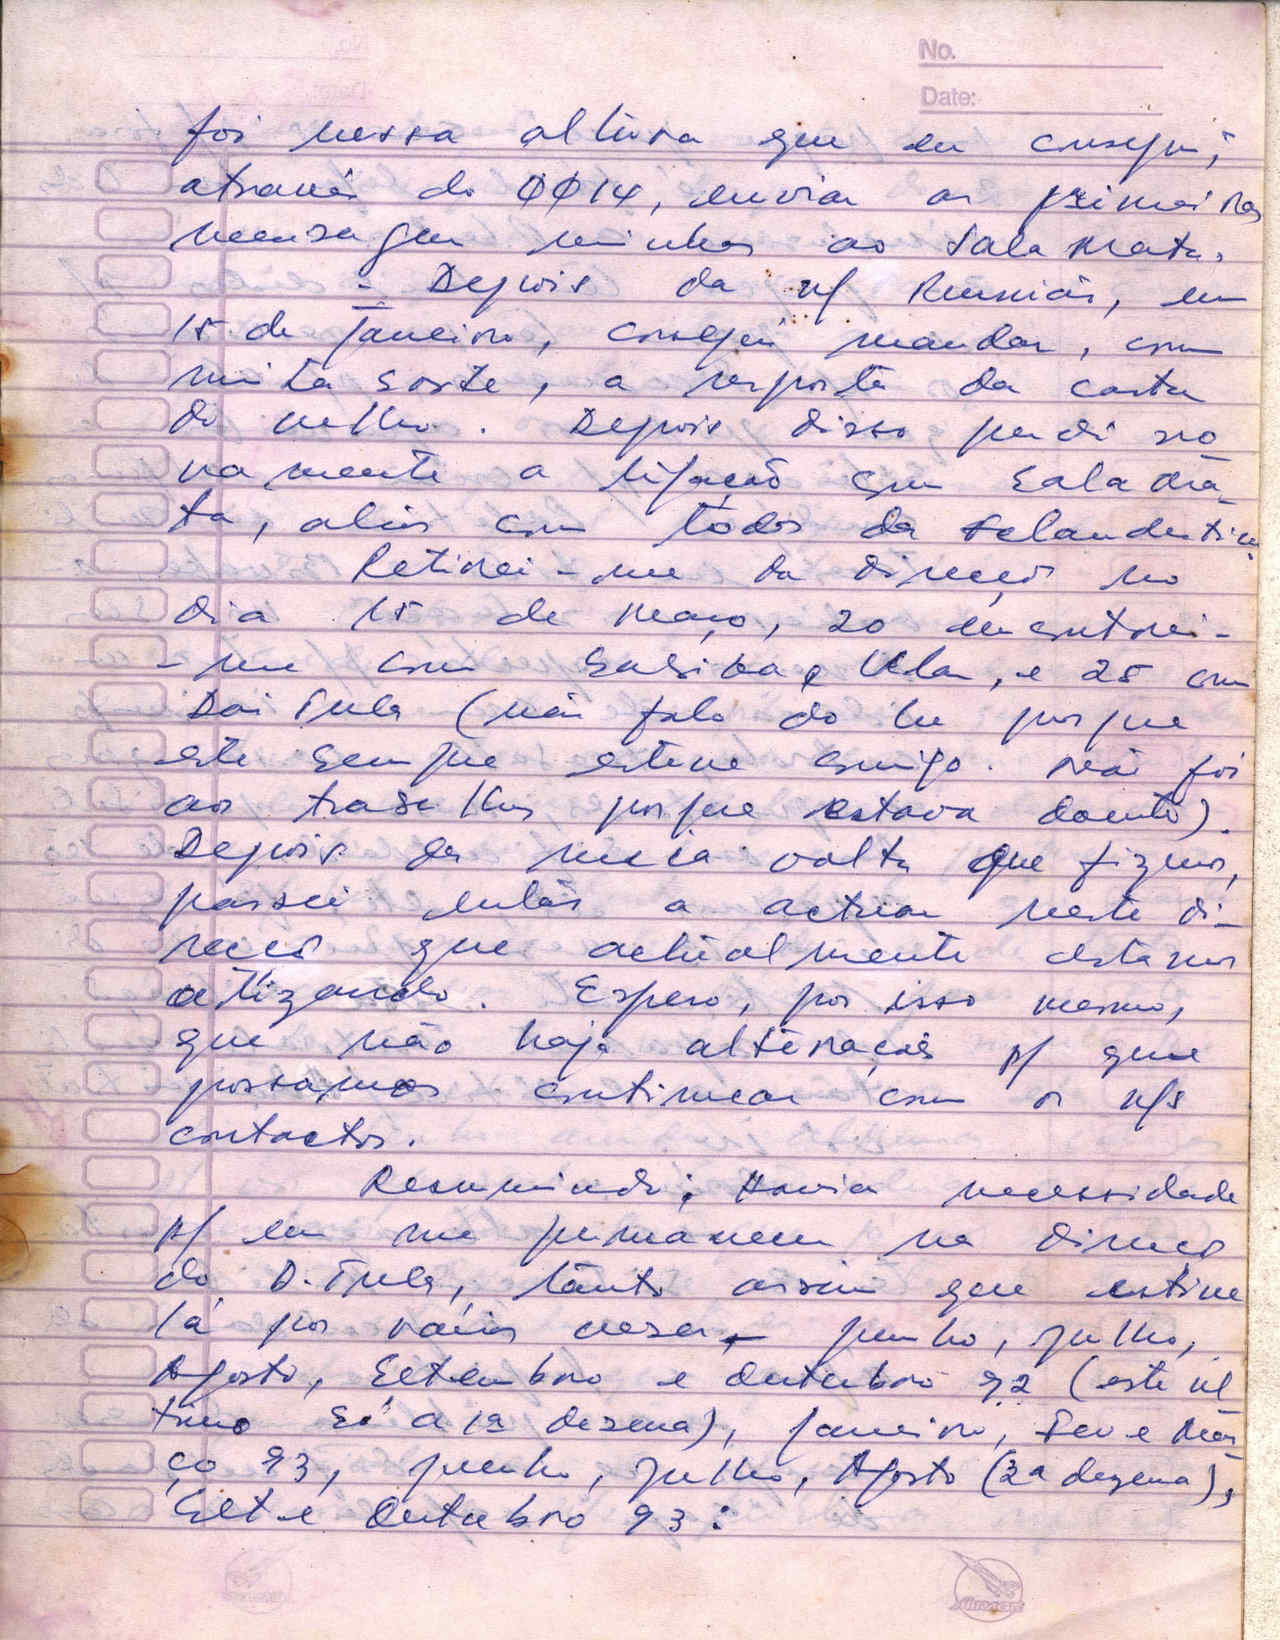 No.
Date:
foi nessa altura que eu consegui,
através do ØØ14, enviar as primeiras
mensagens minhas ao Sala Mata.
- Depois da n/ Reunião, em
15 de Janeiro, consegui mandar, com
muita sorte, a resposta da carta
do velho. Depois disso perdi no
vamente a ligação com Sala Ma-
ta, aliás com todos da
Retirei-me da direcção no
dia 15 de Março, 20 encontrei-
-me com Sabika e Ular, e 25 com
Dai Tula (não falo do Lu porque
este sempre esteve comigo. Não foi
ao trabalho porque estava doente).
Depois da meia volta que fizemos,
passei então a actuar neste di-
recção que actualmente estamos
utilizando. Espero, por isso mesmo,
que não haja alterações p/ que
possamos continuar com os n/s
contactos.
Resumindo; Havia necessidade
p/ eu me permanecer na direcção
do D. Tula, tanto assim que estive
lá por vários meses - Junho, Julho,
Agosto, Setembro e Outubro 92 (este úl
timo só a 1ª dezena), Janeiro, Fev e Mar-
ço 93, Junho, Julho, Agosto (2ª dezena),
Set e Outubro 93: